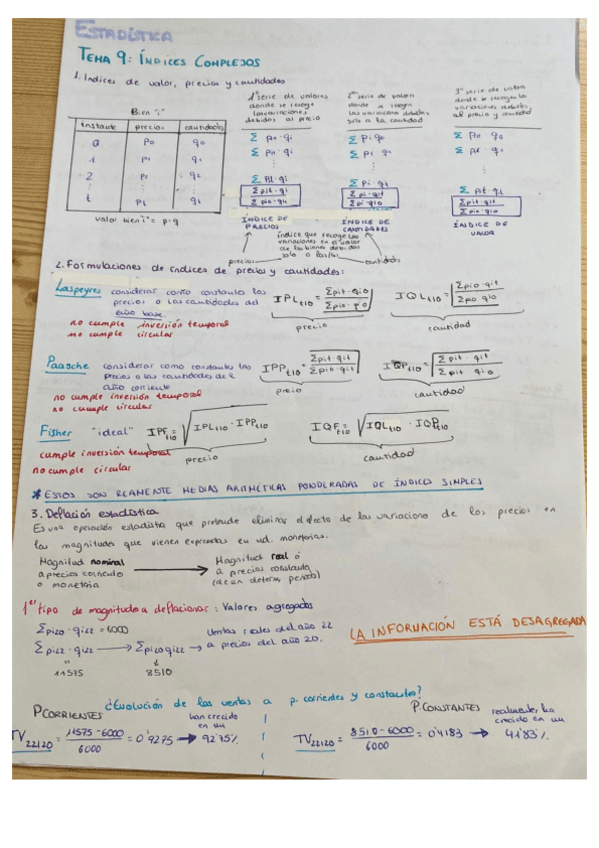 ESTADÍSTICA
TEMA 9: ÍNDICES COMPLEJOS
1. Indices de valor, precios y cantidades
Bien "i"
instante precios cantidades
0 p0 q0
1 p1 q1
2 p2 q2
t pt qt
valor bien i = p·q
1ª serie de valores
donde se recoge
las variaciones
debidas al precio
Σ p0·qi
Σ pt·qi
Σpit·qi
ÍNDICE DE
PRECIOS
2ª serie de valores
donde se recogen
las variaciones debidas
solo a la cantidad
Σ pi·q0
Σ pi·q1
Σ pi·qt
Σpi·qit
Σpi·qio
ÍNDICE DE
CANTIDADES
3ª serie de valor
donde se recogen las
variaciones debidas
al precio y cantidad
Σ p0 q0
Σ pt·qt
Σpit·qit
Σpio·qio
ÍNDICE DE
VALOR
índice que recoge las
variaciones en el valor
de los bienes debidas
solo a
precios cantidades
2. Formulaciones de índices de precios y cantidades:
Laspeyres considerar como constante los
precios o las cantidades del
año base.
no cumple inversión temporal
no cumple circular
IPL t|0 = Σpit·qio / Σpio·qio
precio
IQL t|0 = Σpio·qit / Σpio qio
cantidad
Paasche considerar como constantes los
precios o las cantidades del
año corriente
no cumple inversión temporal
no cumple circular
IPP t|0 = Σpit·qit / Σpio·qit
precio
IQP t|0 = Σpit·qit / Σpit·qio
cantidad
Fisher "ideal" IPF t|0 = √IPL t|0 · IPP t|0
precio
IQF t|0 = √IQL t|0 · IQP t|0
cantidad
cumple inversión temporal
no cumple circular
* ESTOS SON REAMENTE MEDIAS ARITMÉTICAS PONDERADAS DE ÍNDICES SIMPLES
3. Deflación estadística
Es una operación estadística que pretende eliminar el efecto de las variaciones de los precios en
las magnitudes que vienen expresadas en ud. monetarias.
Magnitud nominal
a precios corriente
o monetaria
→ Magnitud real ó
a precios constante
(de un determ. periodo)
1er tipo de magnitud a deflacionar: Valores agregados
Σpi20·qi22 = 6000
Σpi22·qi22 → Σpi20qi22 →
11575
8510
ventas reales del año 22
a precios del año 20.
LA INFORMACIÓN ESTÁ DESAGREGADA
¿Evolución de las ventas a p. corrientes y constantes?
P CORRIENTES
TV 22|20 = 11575-6000 / 6000 = 0'9275 → 92'75%
han crecido
en un
P CONSTANTES
TV 22|20 = 8510-6000 / 6000 = 0'4183 → 41'83%
realmente ha
crecido en un